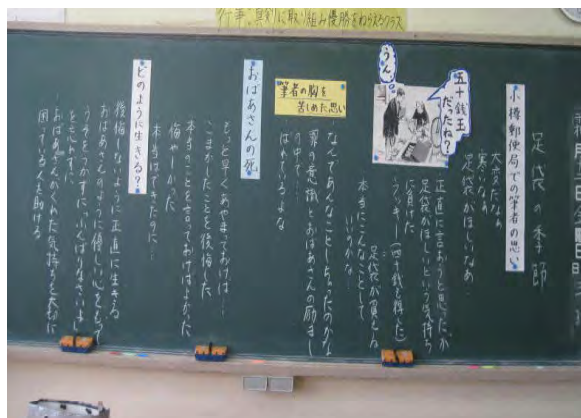 行事、真剣に取り組み優勝をねらえるクラス
足袋の季節
小樽郵便局での筆者の思い
大変だなあ
寒いなあ
足袋がほしいなあ
五十銭玉
だったね？
うん。
正直に言おうと思ったが
足袋がほしいという気持ち
に負けた
ラッキー（四十銭を得た）
足袋が買える
本当にこんなことして
いいのかな…
筆者の胸を
苦しめた思い
なんであんなことしちゃったのかな
罪の意識とおばあさんの励まし
の中で…
がんばれよな
おばあさんの死
もっと早くあやまっておけば…
ごまかしたことを後悔した
本当のことを言っておけばよかった
悔やしかった
本当はできたのに…
どのように生きる？
後悔しないように正直に生きる
おばあさんのように優しい心をもって
うそをつかずに
おばあさんがくれた気持ちを大切に
困っている人を助ける